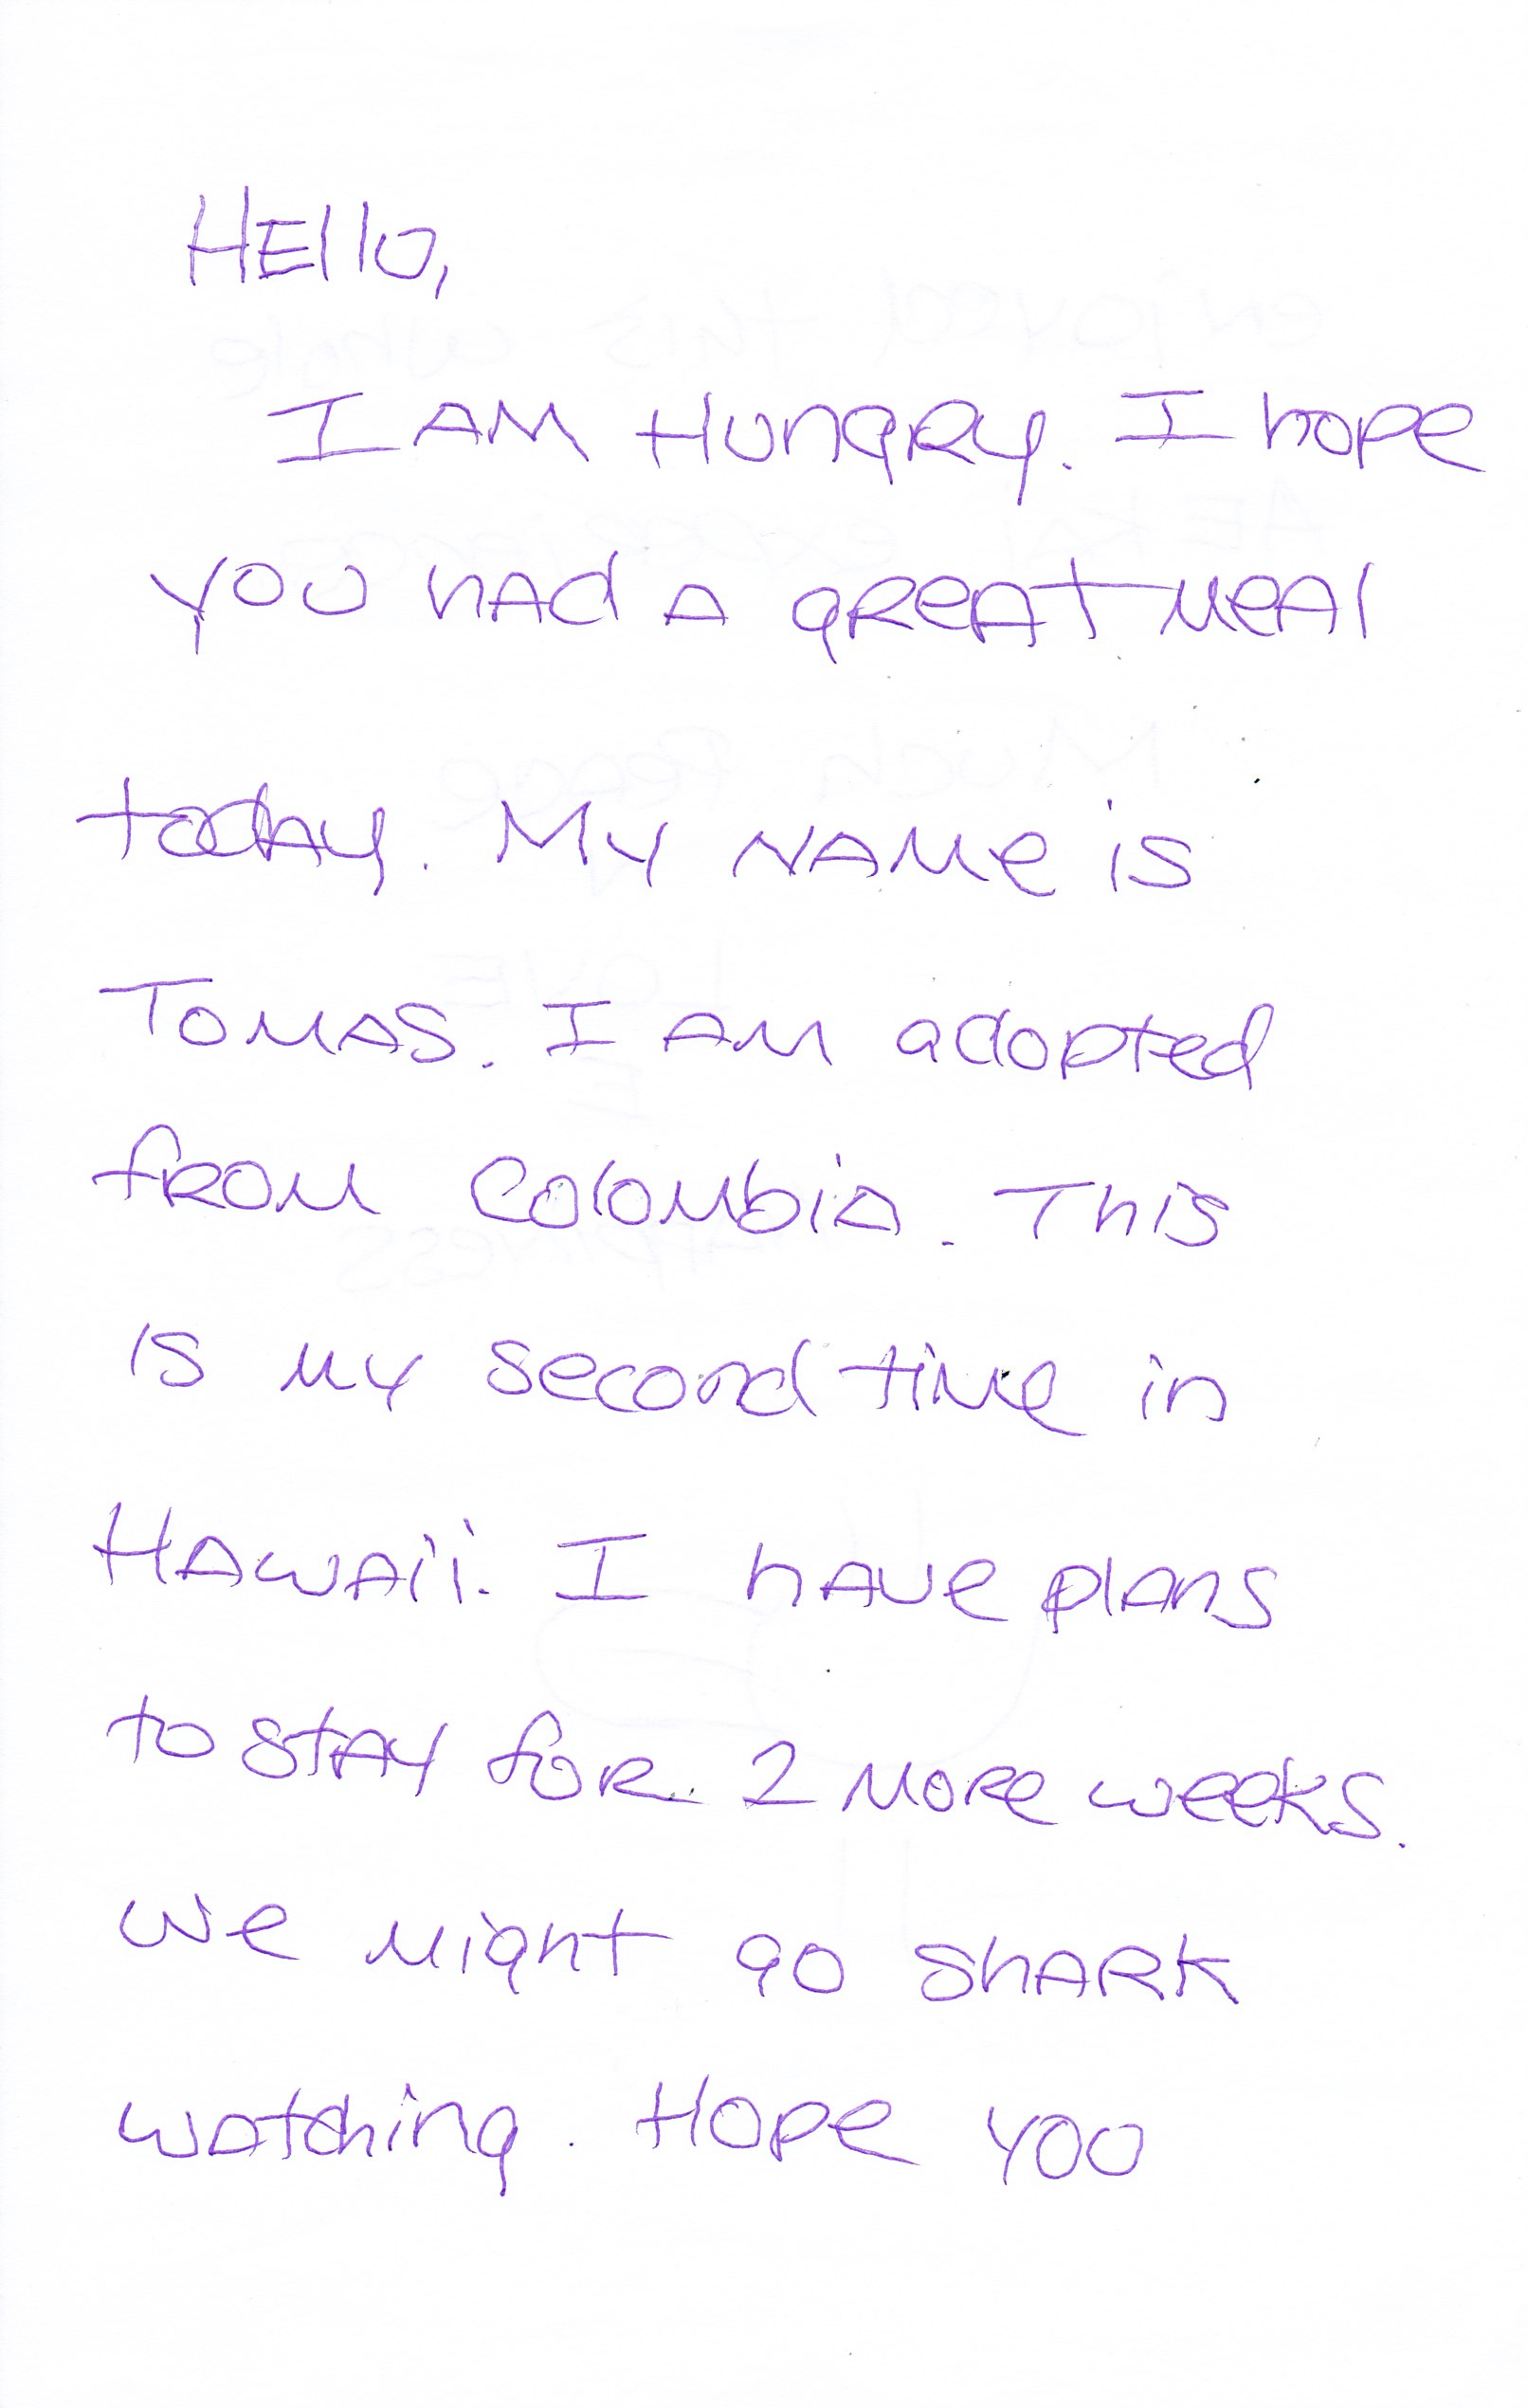 HEllo,
I AM HungRy. I hope
you hAd A gReAt MeAl
todAy. My NAMe is
TOMAS. I AM adopted
fROM ColoMbiA. This
is My second tiMe in
HAwAii. I hAve plAns
to stAy foR. 2 MoRe weeks.
we Might go shARk
wAtching. Hope you